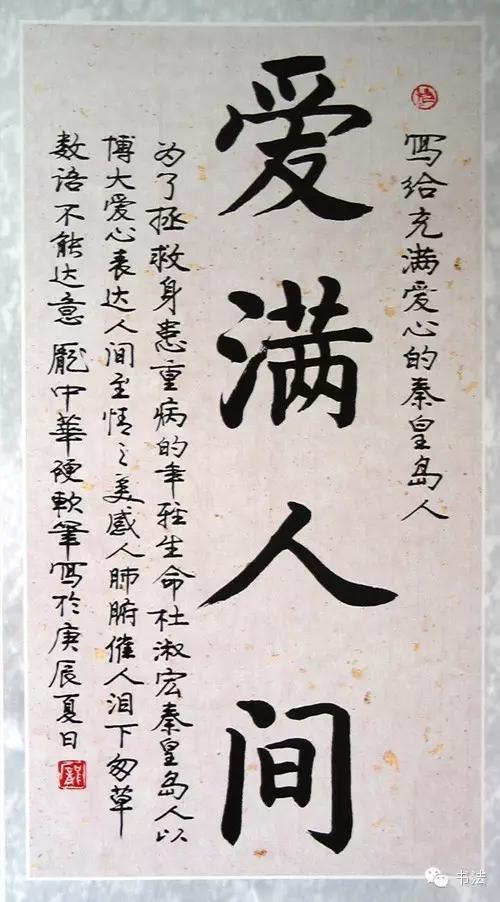 写给充满爱心的秦皇岛人
爱满人间
为了拯救身患重病的年轻生命杜淑宏秦皇岛人以
博大爱心表达人间至情之美感人肺腑催人泪下匆草
数语不能达意龐中華硬軟筆写於庚辰夏日
书法